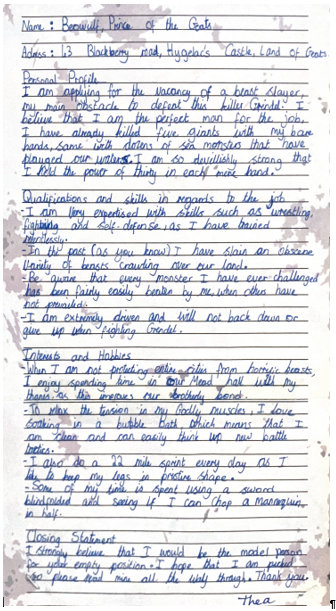 Name : Beowulf, Prince of the Geats
Adress : 13 Blackberry road, Hygelac's Castle, Land of Geats
Personal Profile
I am applying for the vacancy of a beast slayer,
my main obstacle to defeat this killer Grendel. I
believe that I am the perfect man for the job.
I have already killed five giants with my bare
hands, same with dozens of sea monsters that have
plauged our waters. I am so devillishly strong that
I hold the power of thirty in each mere hand.
Qualifications and skills in regards to the job
-I am very expertised with skills such as wrestling,
fighting and self-defense, as I have trained
mercilessly.
-In the past (as you know) I have slain an obscene
variety of beasts crawling over our land.
-Be aware that every monster I have ever challenged
has been fairly easily beaten by me, when others have
not prevailed.
-I am extremely driven and will not back down or
give up when fighting Grendel.
Interests and Hobbies
-When I am not protecting entire cities from horrific beasts,
I enjoy spending time in our Mead hall with my
thanes as this improves our brotherly bond.
-To relax the tension in my Godly muscles, I love
soaking in a bubble bath which means that I
am clean and can easily think up new battle
tactics.
-I also do a 22 mile sprint every day as I
like to keep my legs in pristine shape.
-Some of my time is spent using a sword
blindfolded and seeing if I can chop a Mannequin
in half.
Closing Statment
I strongly believe that I would be the model person
for your empty position. I hope that I am picked
so please read mine all the way through. Thank you
Thea